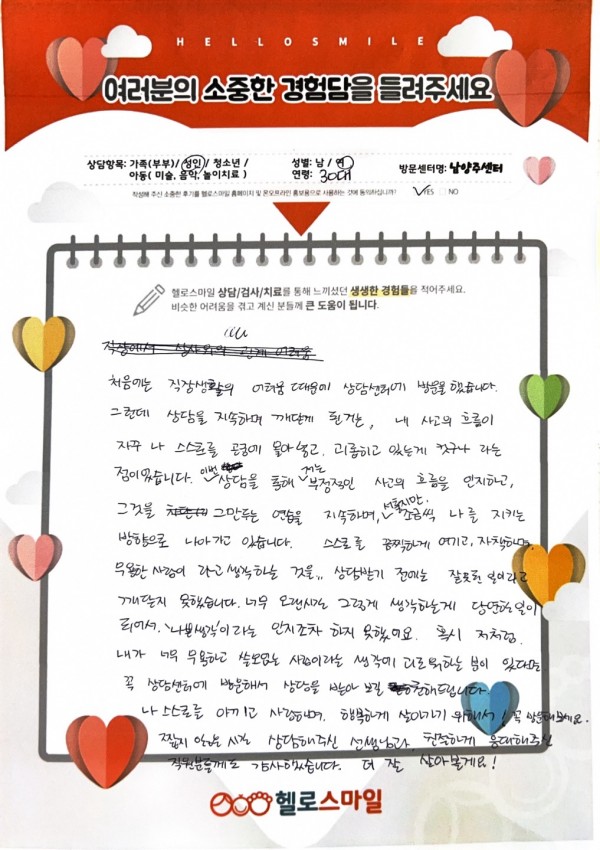 HELLOSMILE
여러분의 소중한 경험담을 들려주세요
상담항목: 가족(부부)/ 성인 / 청소년 / 성별: 남 / 여 방문센터명: 남양주센터
아동( 미술, 음악, 놀이치료 ) 연령: 30대
작성해 주신 소중한 후기를 헬로스마일 홈페이지 및 온오프라인 홍보용으로 사용하는 것에 동의하십니까? YES NO
헬로스마일 상담/검사/치료를 통해 느끼셨던 생생한 경험들을 적어주세요.
비슷한 어려움을 겪고 계신 분들께 큰 도움이 됩니다.
직장에서 상사와의 관계 어려움
처음에는 직장생활의 어려움 때문에 상담센터에 방문을 했습니다.
그런데 상담을 지속하며 깨닫게 된것은, 내 사고의 흐름이
자꾸 나 스스로를 곤궁에 몰아넣고, 괴롭히고 있는게 컸구나 라는
점이었습니다. 이번 상담을 통해 저는 부정적인 사고의 흐름을 인지하고,
그것을 그만두는 연습을 지속하며, 서툴지만, 조금씩 나를 지키는
방향으로 나아가고 있습니다. 스스로를 끔찍하게 여기고, 자책하며,
무용한 사람이 라고 생각하는 것을,, 상담받기 전에는 잘못된 일이라고
깨닫지 못했습니다. 너무 오랜시간 그렇게 생각하는게 당연한 일이
되어서, '나쁜생각'이라는 인지조차 하지 못했어요. 혹시 저처럼,
내가 너무 무용하고 쓸모없는 사람이라는 생각에 괴로워하는 분이 있다면
꼭 상담센터에 방문해서 상담을 받아 보길 추천해드립니다.
나 스스로를 아끼고 사랑하며, 행복하게 살아가기 위해서! 꼭 방문해보세요.
짧지 않은 시간 상담해주신 선생님과, 친절하게 응대해주신
직원분들께도 감사했습니다. 더 잘 살아볼게요!
헬로스마일